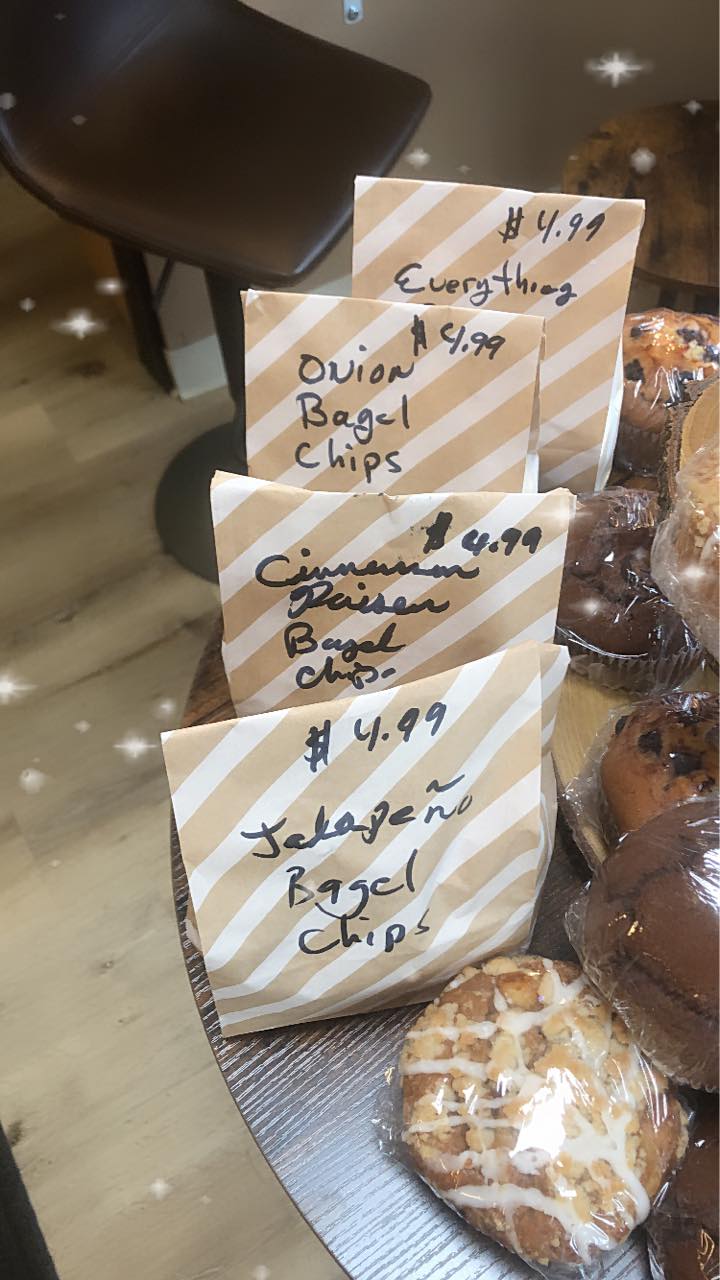 $ 4.99
Everything
$ 4.99
Onion
Bagel
Chips
$ 4.99
Cinnamon
Raisen
Bagel
Chips
$ 4.99
Jalapeño
Bagel
Chips